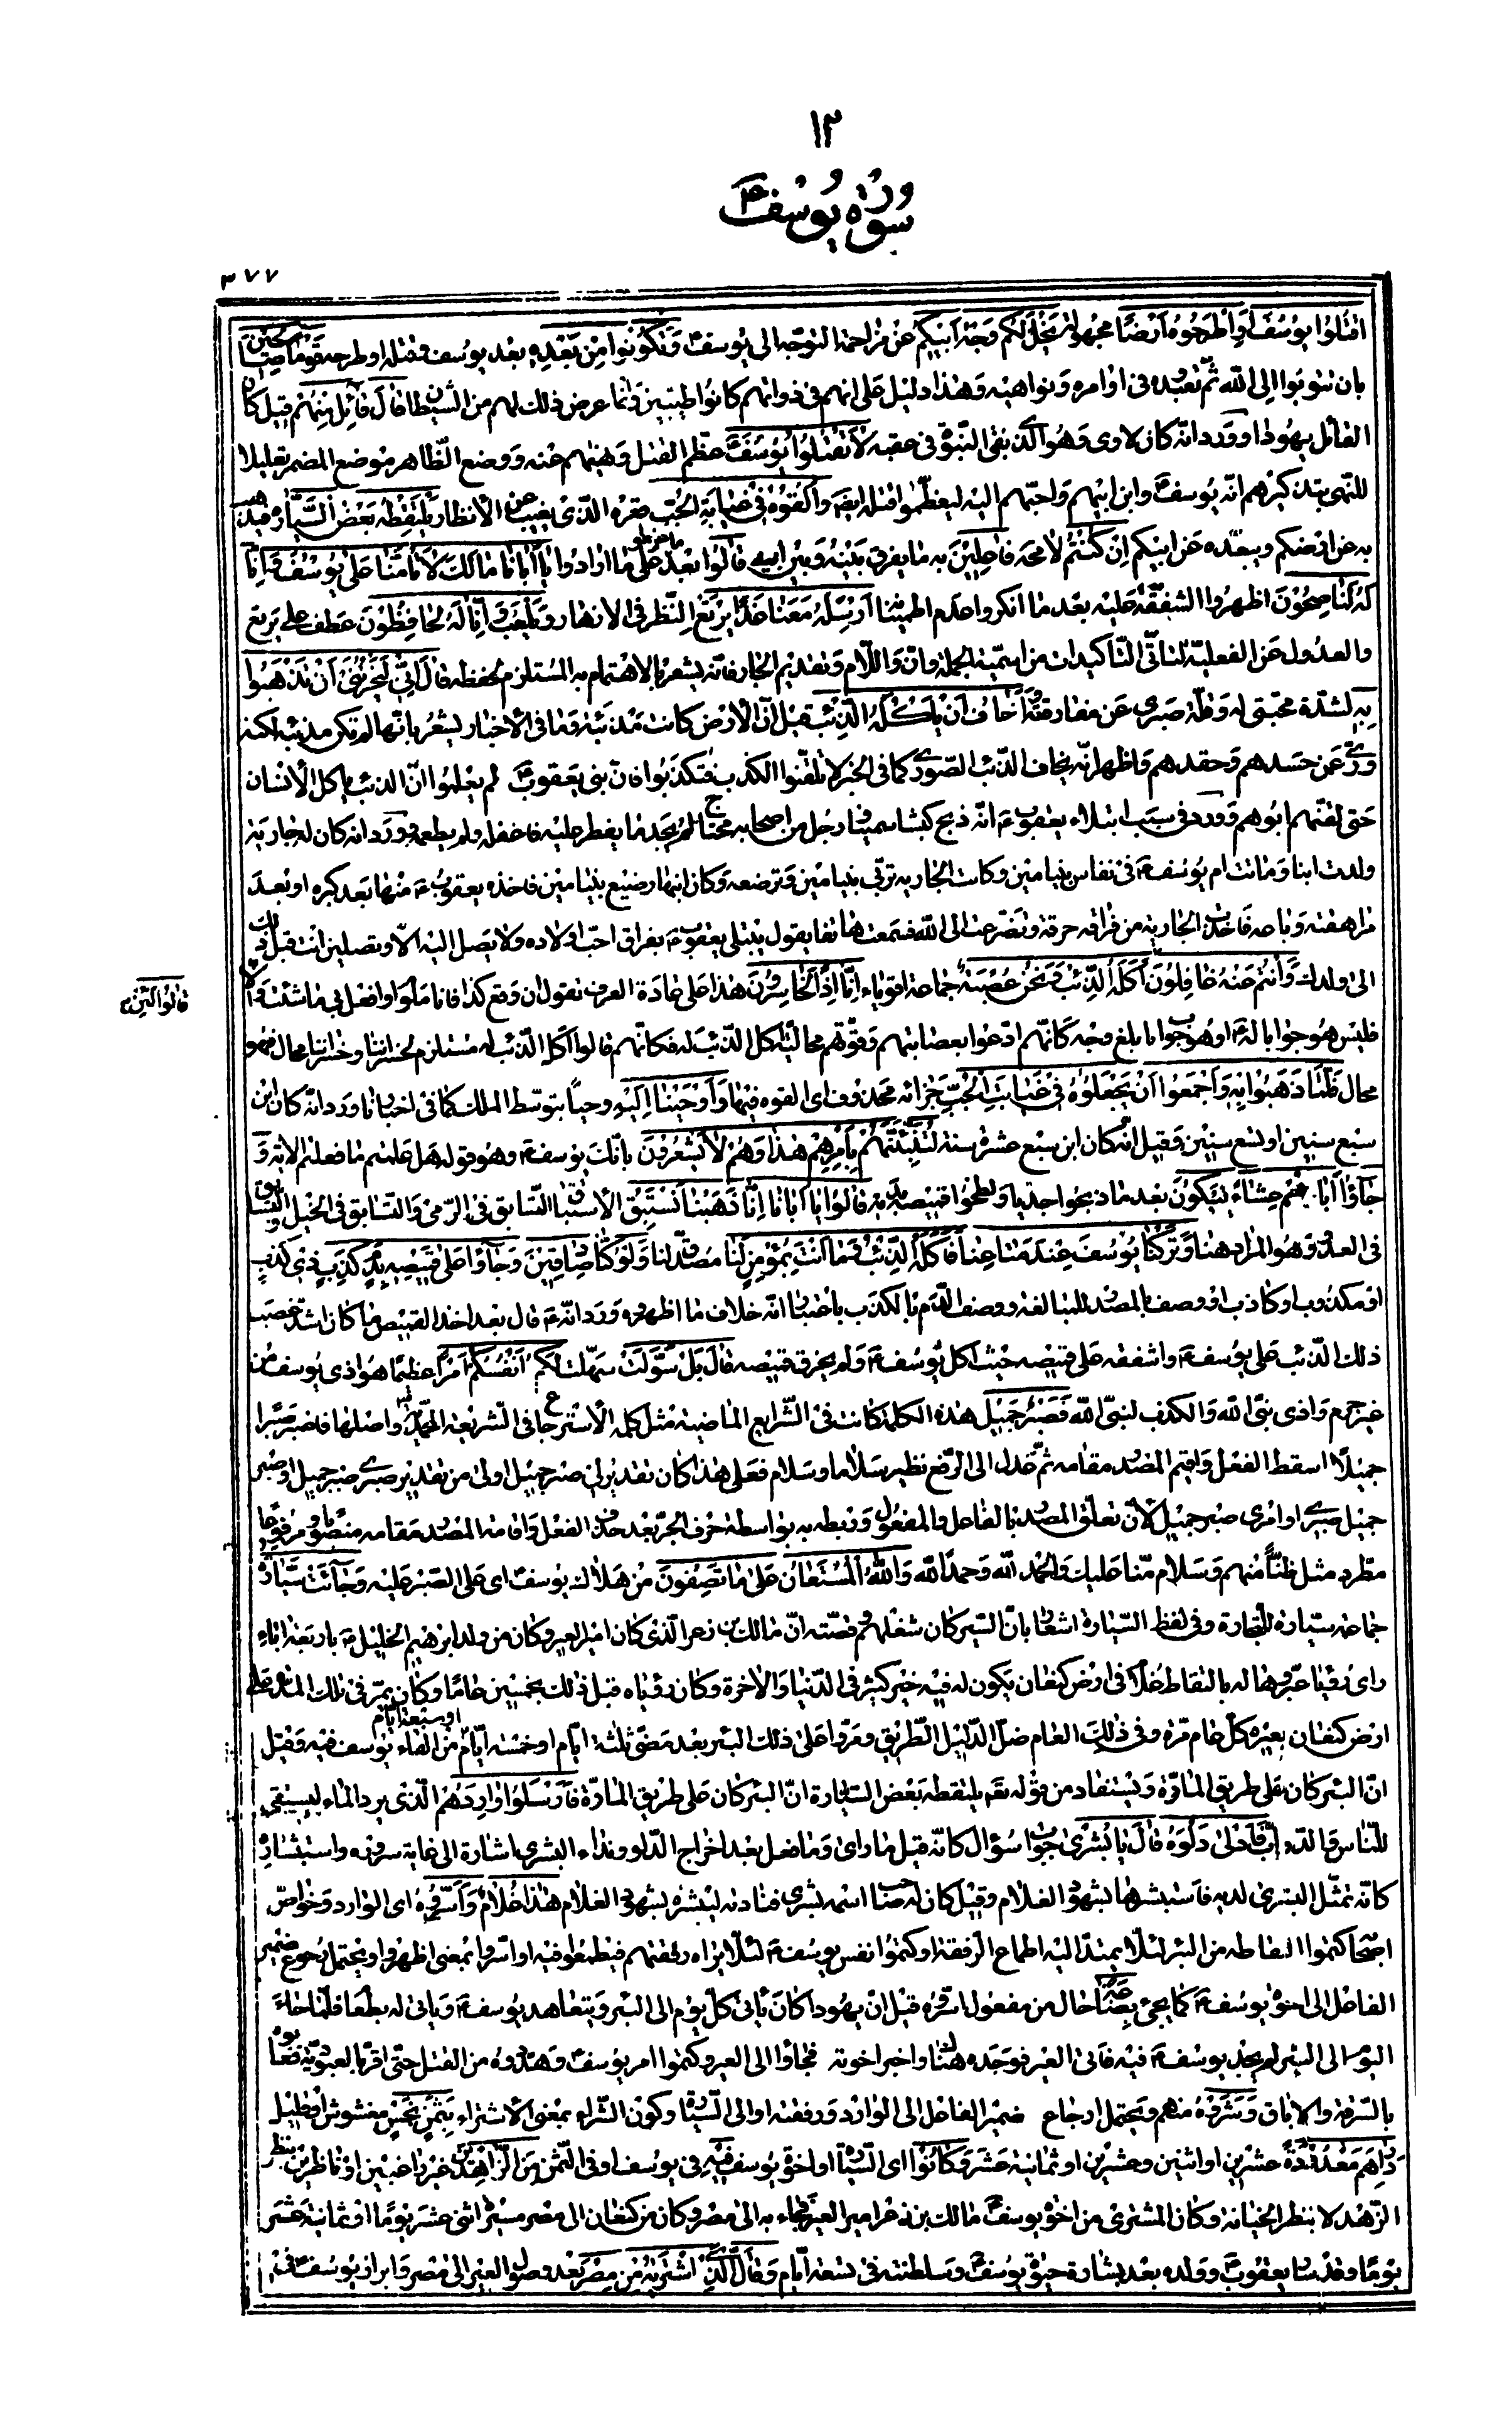 ١٢
سورة يوسف ع
٣٧٧
اقتلوا يوسف او اطرحوه ارضا مجهولة يخل لكم وجه ابيكم عن مزاحمة التوجه الى يوسف ع وتكونوا من بعده بعد يوسف وقتله او طرحه قوما صالحين
بان تتوبوا الى الله ثم تعبده فى اوامره ونواهيه وهذا دليل على انهم فى ذواتهم كانوا طيبين وانما عرض ذلك لهم من الشيطان قال قائل منهم قيل كان
القائل يهودا وورد انه كان لاوى وهو الذى بقى النبوة فى عقبه لا تقتلوا يوسف عظم القتل ونهيهم عنه ووضع الظاهر موضع المضمر تعليلا
للنهى بتذكيرهم انه يوسف ع وابن ابيهم واحبهم اليه ليعظموا قتله ايضا والقوه فى غيابة الجب قعره الذى يغيب عن الانظار يلتقطه بعض السيارة فيذهب
به عن ارضكم ويبعده عن ابيكم ان كنتم لا محة فاعلين به ما يفرق بينه وبين ابيه قالوا بعد ما عزموا على ما ارادوا يا ابانا مالك لا تامنا على يوسف وانا
له لناصحون اظهروا الشفقة عليه بعد ما انكروا عدم اطمينانه ارسله معنا غدا يرتع النظر فى الانهار ويلعب وانا له لحافظون عطف على يرتع
والعدول عن الفعلية لتاتى التاكيدات من اسمية الجملة وان واللام وتقديم الجار فانه يشعر بالاهتمام به المستلزم لحفظه قال انى ليحزننى ان تذهبوا
به لشدة محبتى له وقلة صبرى عن مفارقته واخاف ان ياكله الذئب قيل ان الارض كانت مذئبة وما فى الاخبار يشعر بانها لم تكن مذئبة لكنه
ورى عن حسدهم وحقدهم واظهر انه يخاف الذئب الصورى كما فى الخبر لا تلقنوا الكذب فتكذبوا فان بنى يعقوب ع لم يعلموا ان الذئب ياكل الانسان
حتى لقنهم ابوهم وورد فى سبب ابتلاء يعقوب ع انه ذبح كبشا سمينا ورجل من اصحابه محتاج لم يجد ما يفطر عليه فاغفله ولم يطعمه وورد انه كان له جارية
ولدت ابنا وماتت ام يوسف ع فى نفاس بنيامين وكانت الجارية تربى بنيامين وترضعه وكان ابنها رضيع بنيامين فاخذه يعقوب ع منها بعد كبره او بعد
مراهقته وباعه فاخذت الجارية من فراقه حرقة وتضرعت الى الله فسمعت هاتفا يقول يبتلى يعقوب ع بفراق احب اولاده ولا يصل اليه الا وتصلين انت قبل ذلك
الى ولدك وانتم عنه غافلون قالوا لئن اكله الذئب ونحن عصبة جماعة اقوياء انا اذا لخاسرون هذا على عادة العرف تقول ان وقع كذا فانا ملوم وافعل بى ما شئت والا
فليس هو جوابا له ع او هو جواب بابلغ وجه كانهم ادعوا بعصابتهم وقوتهم محالية اكل الذئب له فكانهم قالوا اكل الذئب له مستلزم لخسراننا وخسراننا محال فهو
محال فلما ذهبوا به واجمعوا ان يجعلوه فى غيابت الجب جزائه محذوف اى القوه فيها واوحينا اليه وحيا بتوسط الملك كما فى اخبارنا وورد انه كان ابن
سبع سنين او تسع سنين وقيل انه كان ابن سبع عشرة سنة لتنبئنهم بامرهم هذا وهم لا يشعرون بانك يوسف ع وهو قوله هل علمتم ما فعلتم الاية و
جاؤا اباهم عشاء يبكون بعد ما ذبحوا جديا ولطخوا قميصه بدمه قالوا يا ابانا انا ذهبنا نستبق الاستباق التسابق فى الرمى والتسابق فى الخيل والتسابق
فى العدو وهو المراد ههنا وتركنا يوسف عند متاعنا فاكله الذئب وما انت بمؤمن لنا مصدق لنا ولو كنا صادقين وجاؤا على قميصه بدم كذب ذى كذب
او مكذوب او كاذب او وصف بالمصدر للمبالغة ووصف الدم بالكذب باعتبار انه خلاف ما اظهروه وورد انه ع قال بعد اخذ القميص ما كان اشد غضب
ذلك الذئب على يوسف ع واشفقه على قميصه حيث اكل يوسف ع ولم يخرق قميصه قال بل سولت سهلت لكم انفسكم امرا عظيما هو اذى يوسف ع من
غير جرم واذى نبى الله والكذب لنبى الله فصبر جميل هذه الكلمة كانت فى الشرايع الماضية مثل كلمة الاسترجاع فى الشريعة المحمدية واصلها فاصبر صبرا
جميلا اسقط الفعل واقيم المصدر مقامه ثم عدل الى الرفع نظير سلاما وسلام فعلى هذا كان تقدير لى صبر جميل اولى من تقدير صبرى صبر جميل او صبر
جميل صبرى او امرى صبر جميل لان تعلق المصدر بالفاعل والمفعول وربطه به بواسطة حرف الجر بعد حذف الفعل واقامة المصدر مقامه منصوبا ومرفوعا
مطرد مثل ظنا منهم وسلام منا عليك والحمد لله وحمدا لله والله المستعان على ما تصفون من هلاك يوسف ع اى على الصبر عليه وجائت سيارة
جماعة سيارة للتجارة وفى لفظ السيارة اشعار بان السير كان شغلهم وقصته ان مالك بن زعر الذى كان امير العير وكان من ولد ابرهيم الخليل ع باربعة اباء
راى رؤيا عبروها له بالتقاط غلام فى ارض كنعان يكون له فيه خير كثير فى الدنيا والاخرة وكان رؤياه قبل ذلك بخمسين عاما وكان يمر فى تلك المدة على
ارض كنعان بعيره كل عام مرة وفى ذلك العام ضل الدليل الطريق ومروا على ذلك البئر بعد مضى ثلثة ايام او خمسة ايام او سبعة ايام من القاء يوسف فيه وقيل
ان البئر كان على طريق المارة ويستفاد من قوله تعه يلتقطه بعض السيارة ان البئر كان على طريق المارة فارسلوا واردهم الذى يرد الماء ليستقى
للناس والدواب فادلى دلوه قال يا بشرى جواب سؤال كانه قيل ما راى وما فعل بعد اخراج الدلو ونداء البشرى اشارة الى غاية سروره واستبشاره
كانه تمثل البشرى لديه فاستبشرها بشهود الغلام وقيل كان له صاحب اسمه بشرى فناداه ليبشره بشهود الغلام هذا غلام واسروه اى الوارد وخواص
اصحابه كتموا التقاطه من البئر لئلا يمتد اليه اطماع الرفقة او كتموا نفس يوسف ع لئلا يراه رفقتهم فيطمعوا فيه او اسروا بمعنى اظهروا ويحتمل رجوع ضمير
الفاعل الى اخوة يوسف ع كما يجئ بضاعة حال من مفعول اسروه قيل ان يهودا كان ياتى كل يوم الى البئر ويتعاهد يوسف ع وياتى له بطعام فلما جاء
اليوم الى البئر لم يجد يوسف ع فيه فاتى العير فوجده هناك واخبر اخوته فجاؤا الى العير وكتموا امر يوسف ع وهددوه من القتل حتى اقر بالعبودية فعابوه
بالسرقة والاباق وشروه منهم ويحتمل ارجاع ضمير الفاعل الى الوارد ورفقته او الى السيارة وكون الشراء بمعنى الاشتراء بثمن بخس مغشوش او قليل
دراهم معدودة عشرين او اثنين وعشرين او ثمانية عشر وكانوا اى السيارة او اخوة يوسف فيه فى يوسف او فى الثمن من الزاهدين غير راغبين او ناظرين بنظر
الزهد لا بنظر الخيانة وكان المشترى من اخوة يوسف ع مالك بن زعر امير العير فجاء به الى مصر وكان من كنعان الى مصر مسير اثنى عشر يوما او ثمانية عشر
يوما وقد سار يعقوب ع وولده بعد بشارة حيوة يوسف ع وسلطنته فى تسعة ايام وقال الذى اشتريه من مصر بعد وصول العير الى مصر وابراز يوسف ع فى
قالوا لئن